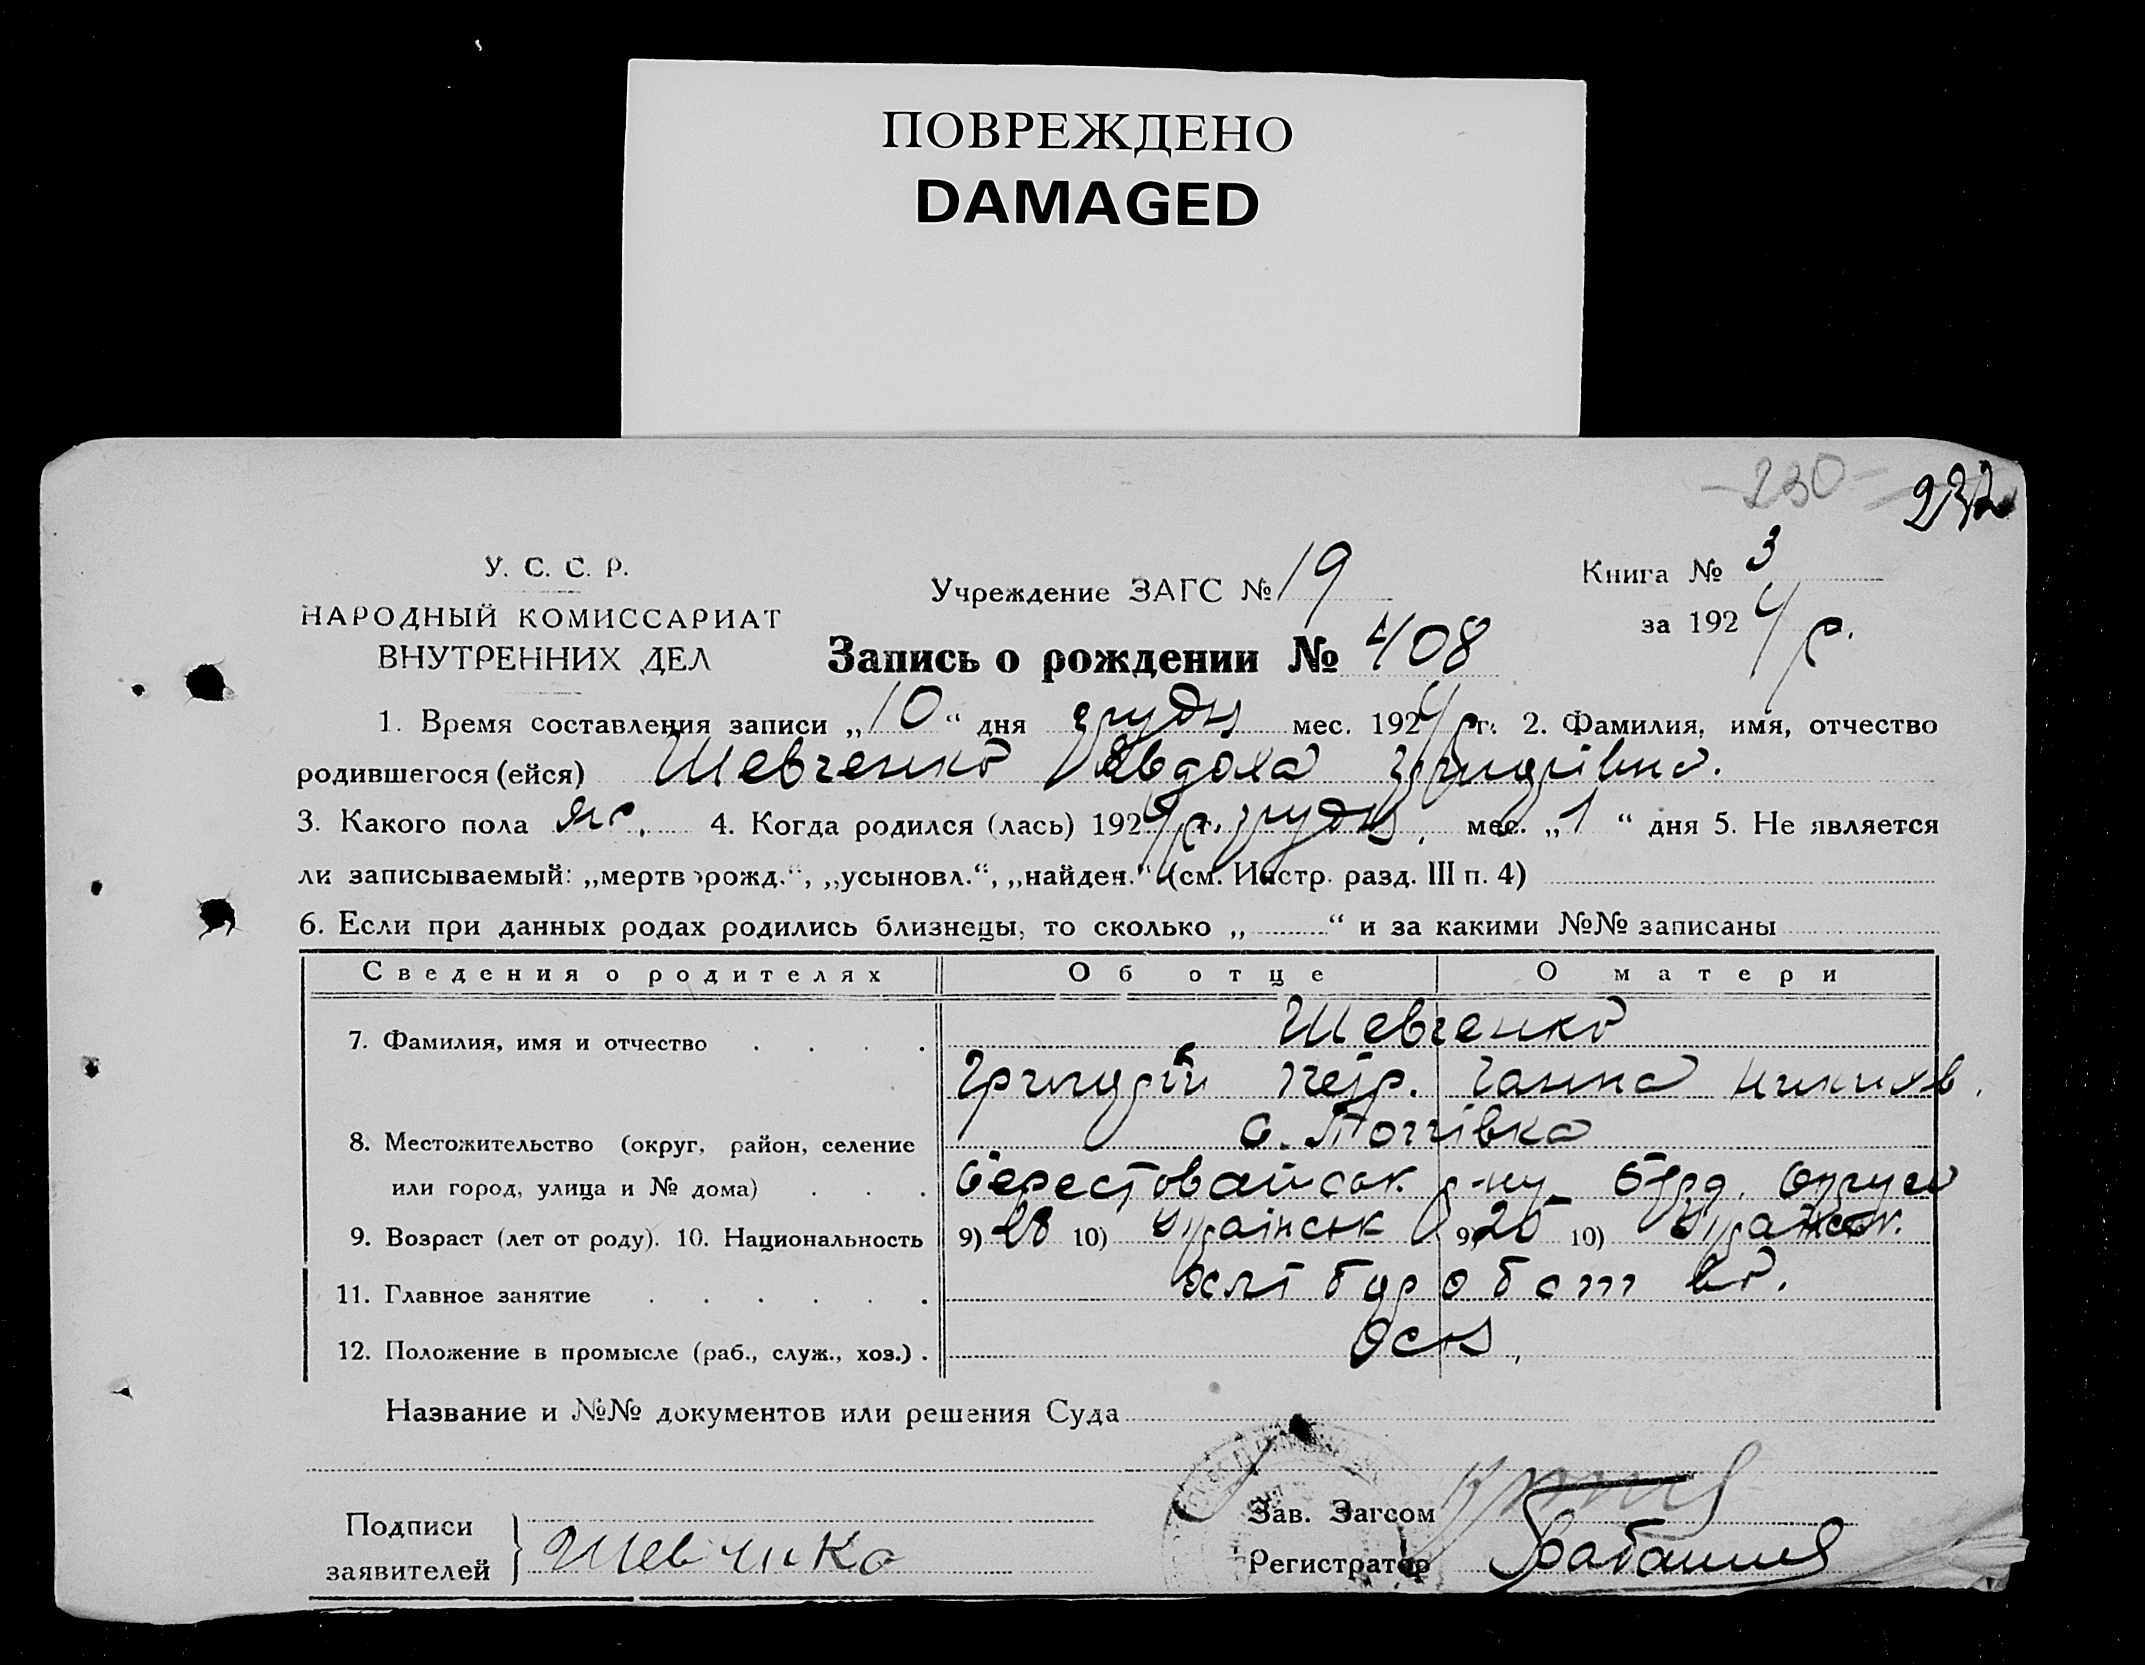 ПОВРЕЖДЕНО
DAMAGED
230
232
У. С. С. Р.
НАРОДНЫЙ КОМИССАРИАТ
ВНУТРЕННИХ ДЕЛ
Учреждение ЗАГС № 19
Книга № 3
за 1924 р.
Запись о рождении № 408
1. Время составления записи „10“ дня грудн мес. 1924 р г. 2. Фамилия, имя, отчество
родившегося (ейся) Шевченко Явдоха Григорівна.
3. Какого пола жін. 4. Когда родился (лась) 1924 р. г. грудн, мес. „1“ дня 5. Не является
ли записываемый: „мертворожд.“, „усыновл.“, „найден.“ (см. Инстр. разд. III п. 4)
6. Если при данных родах родились близнецы, то сколько „ “ и за какими №№ записаны
Сведения о родителях Об отце О матери
7. Фамилия, имя и отчество Шевченко
Григорій Петр. Ганна
8. Местожительство (округ, район, селение
или город, улица и № дома) Берестовайськ р-ну Берд. округи
9. Возраст (лет от роду). 10. Национальность 9) 28 10) Українськ 9) 25 10) Українськ.
11. Главное занятие хліборобств.
12. Положение в промысле (раб., служ., хоз.)
Название и №№ документов или решения Суда
Подписи
заявителей Шевчнко
Зав. Загсом
Регистратор